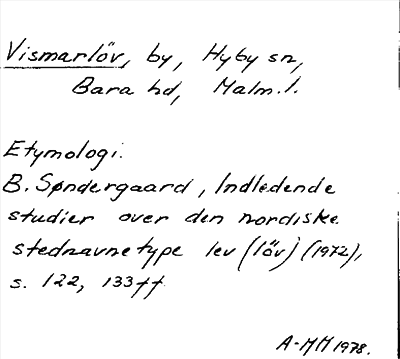 Vismarlöv, by, Hyby sn,
Bara hd, Malm. l.
Etymologi.
B. Søndergaard, Indledende
studier over den nordiske
stednavnetype lev (löv) (1972),
s. 122, 133 ff
A-MH 1978.